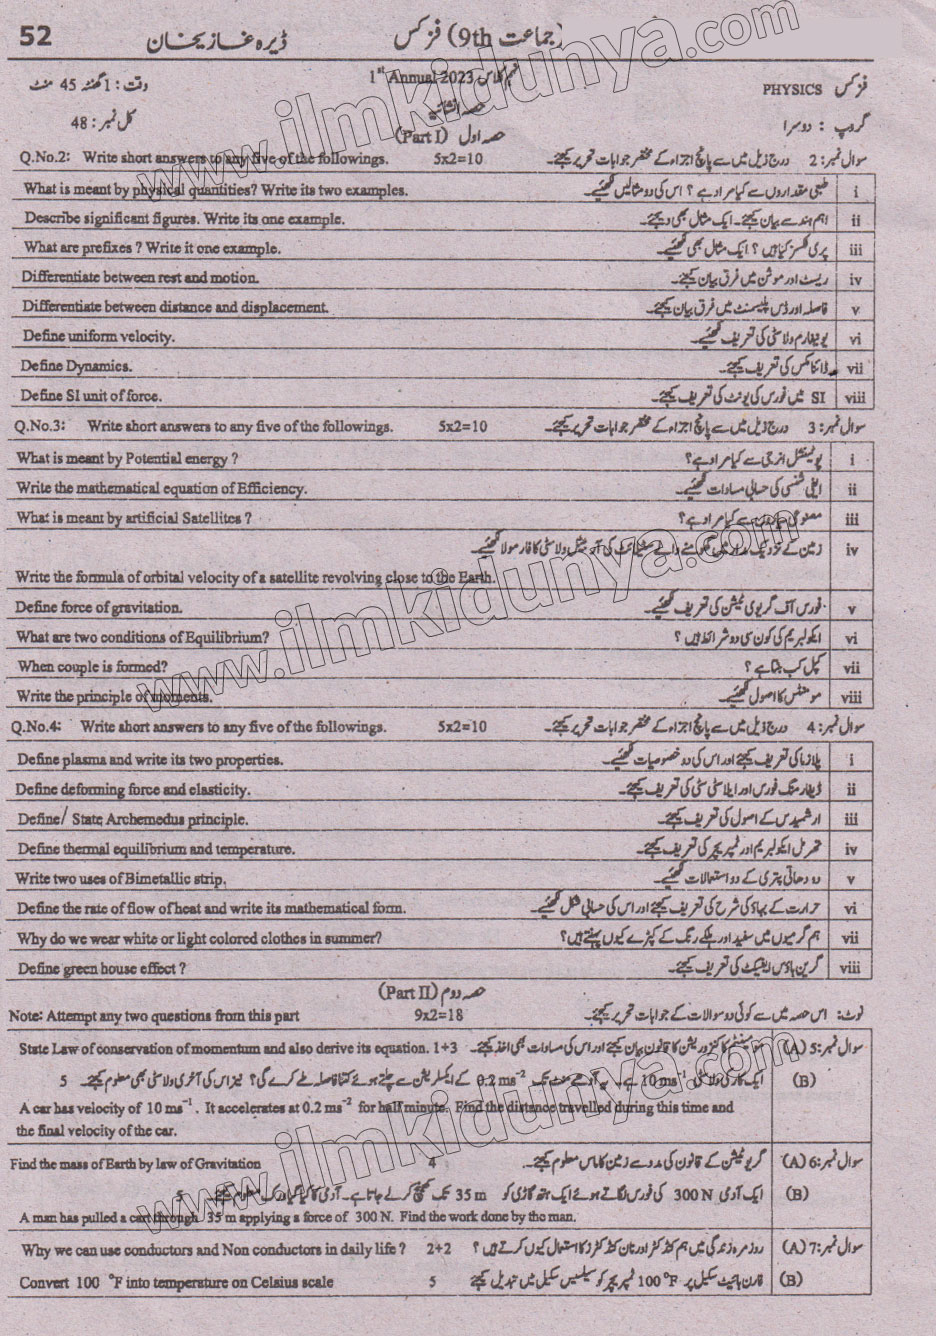 52 ڈیرہ غازیخان (جماعت 9th) فزکس
وقت: 1 گھنٹہ 45 منٹ 1st Annual 2023 نہم کلاس PHYSICS فزکس
کل نمبر: 48 حصہ انشائیہ گروپ : دوسرا
حصہ اول (Part I)
Q.No.2: Write short answers to any five of the followings. 5x2=10 سوال نمبر: 2 درج ذیل میں سے پانچ اجزاء کے مختصر جوابات تحریر کیجئے۔
What is meant by physical quantities? Write its two examples. طبعی مقداروں سے کیا مراد ہے ؟ اس کی دو مثالیں لکھیئے۔ i
Describe significant figures. Write its one example. اہم ہندسے بیان کیجئے۔ ایک مثال بھی دیجئے۔ ii
What are prefixes ? Write it one example. پری فکسز کیا ہیں ؟ ایک مثال بھی لکھیئے۔ iii
Differentiate between rest and motion. ریسٹ اور موشن میں فرق بیان کیجئے۔ iv
Differentiate between distance and displacement. فاصلہ اور ڈس پلیسمنٹ میں فرق بیان کیجئے۔ v
Define uniform velocity. یونیفارم ولاسٹی کی تعریف لکھیئے۔ vi
Define Dynamics. ڈائنامکس کی تعریف کیجئے۔ vii
Define SI unit of force. SI میں فورس کی یونٹ کی تعریف کیجئے۔ viii
Q.No.3: Write short answers to any five of the followings. 5x2=10 سوال نمبر: 3 درج ذیل میں سے پانچ اجزاء کے مختصر جوابات تحریر کیجئے۔
What is meant by Potential energy ? پوٹینشل انرجی سے کیا مراد ہے؟ i
Write the mathematical equation of Efficiency. ایفی شنسی کی حسابی مساوات لکھیئے۔ ii
What is meant by artificial Satellites ? مصنوعی سے کیا مراد ہے؟ iii
زمین کے نزدیک مدار میں گھومنے والے سیٹلائٹ کی آربیٹل ولاسٹی کا فارمولا لکھیئے۔ iv
Write the formula of orbital velocity of a satellite revolving close to the Earth.
Define force of gravitation. فورس آف گریوی ٹیشن کی تعریف لکھیئے۔ v
What are two conditions of Equilibrium? ایکولبریم کی کون سی دو شرائط ہیں ؟ vi
When couple is formed? کپل کب بنتا ہے ؟ vii
Write the principle of moments. مومنٹس کا اصول لکھیئے۔ viii
Q.No.4: Write short answers to any five of the followings. 5x2=10 سوال نمبر: 4 درج ذیل میں سے پانچ اجزاء کے مختصر جوابات تحریر کیجئے۔
Define plasma and write its two properties. پلازما کی تعریف کیجئے اور اس کی دو خصوصیات لکھیئے۔ i
Define deforming force and elasticity. ڈیفارمنگ فورس اور ایلاسٹی سٹی کی تعریف کیجئے۔ ii
Define/ State Archemedus principle. ارشمیدس کے اصول کی تعریف کیجئے۔ iii
Define thermal equilibrium and temperature. تھرمل ایکولبریم اور ٹمپریچر کی تعریف کیجئے۔ iv
Write two uses of Bimetallic strip. دو دھاتی پتری کے دو استعمالات لکھیئے۔ v
Define the rate of flow of heat and write its mathematical form. حرارت کے بہاؤ کی شرح کی تعریف کیجئے اور اس کی حسابی شکل لکھیئے۔ vi
Why do we wear white or light colored clothes in summer? ہم گرمیوں میں سفید اور ہلکے رنگ کے کپڑے کیوں پہنتے ہیں؟ vii
Define green house effect ? گرین ہاؤس ایفیکٹ کی تعریف کیجئے۔ viii
حصہ دوم (Part II)
Note: Attempt any two questions from this part 9x2=18 نوٹ: اس حصہ میں سے کوئی دو سوالات کے جوابات تحریر کیجئے۔
State Law of conservation of momentum and also derive its equation. 1+3 مومینٹم کا کنزرویشن کا قانون بیان کیجئے اور اس کی مساوات بھی اخذ کیجئے۔ سوال نمبر:5 (A)
(B) ایک کار کی ولاسٹی 10 ms⁻¹ ہے۔ یہ آدھے منٹ تک 0.2 ms⁻² کے ایکسلریشن سے چلتے ہوئے کتنا فاصلہ طے کرے گی؟ نیز اس کی آخری ولاسٹی بھی معلوم کیجئے۔ 5
A car has velocity of 10 ms⁻¹. It accelerates at 0.2 ms⁻² for half minute. Find the distance travelled during this time and
the final velocity of the car.
Find the mass of Earth by law of Gravitation 4 گریویٹیشن کے قانون کی مدد سے زمین کا ماس معلوم کیجئے۔ سوال نمبر:6 (A)
(B) ایک آدمی 300 N کی فورس لگاتے ہوئے ایک ہتھ گاڑی کو 35 m تک کھینچ کر لے جاتا ہے۔ آدمی کا کیا گیا ورک معلوم کیجئے۔ 5
A man has pulled a cart through 35 m applying a force of 300 N. Find the work done by the man.
Why we can use conductors and Non conductors in daily life ? 2+2 روزمرہ زندگی میں ہم کنڈکٹرز اور نان کنڈکٹرز کا استعمال کیوں کرتے ہیں ؟ سوال نمبر:7 (A)
Convert 100 °F into temperature on Celsius scale 5 فارن ہائیٹ سکیل پر 100 °F ٹمپریچر کو سیلسیس سکیل میں تبدیل کیجئے (B)
www.ilmkidunya.com
www.ilmkidunya.com
www.ilmkidunya.com